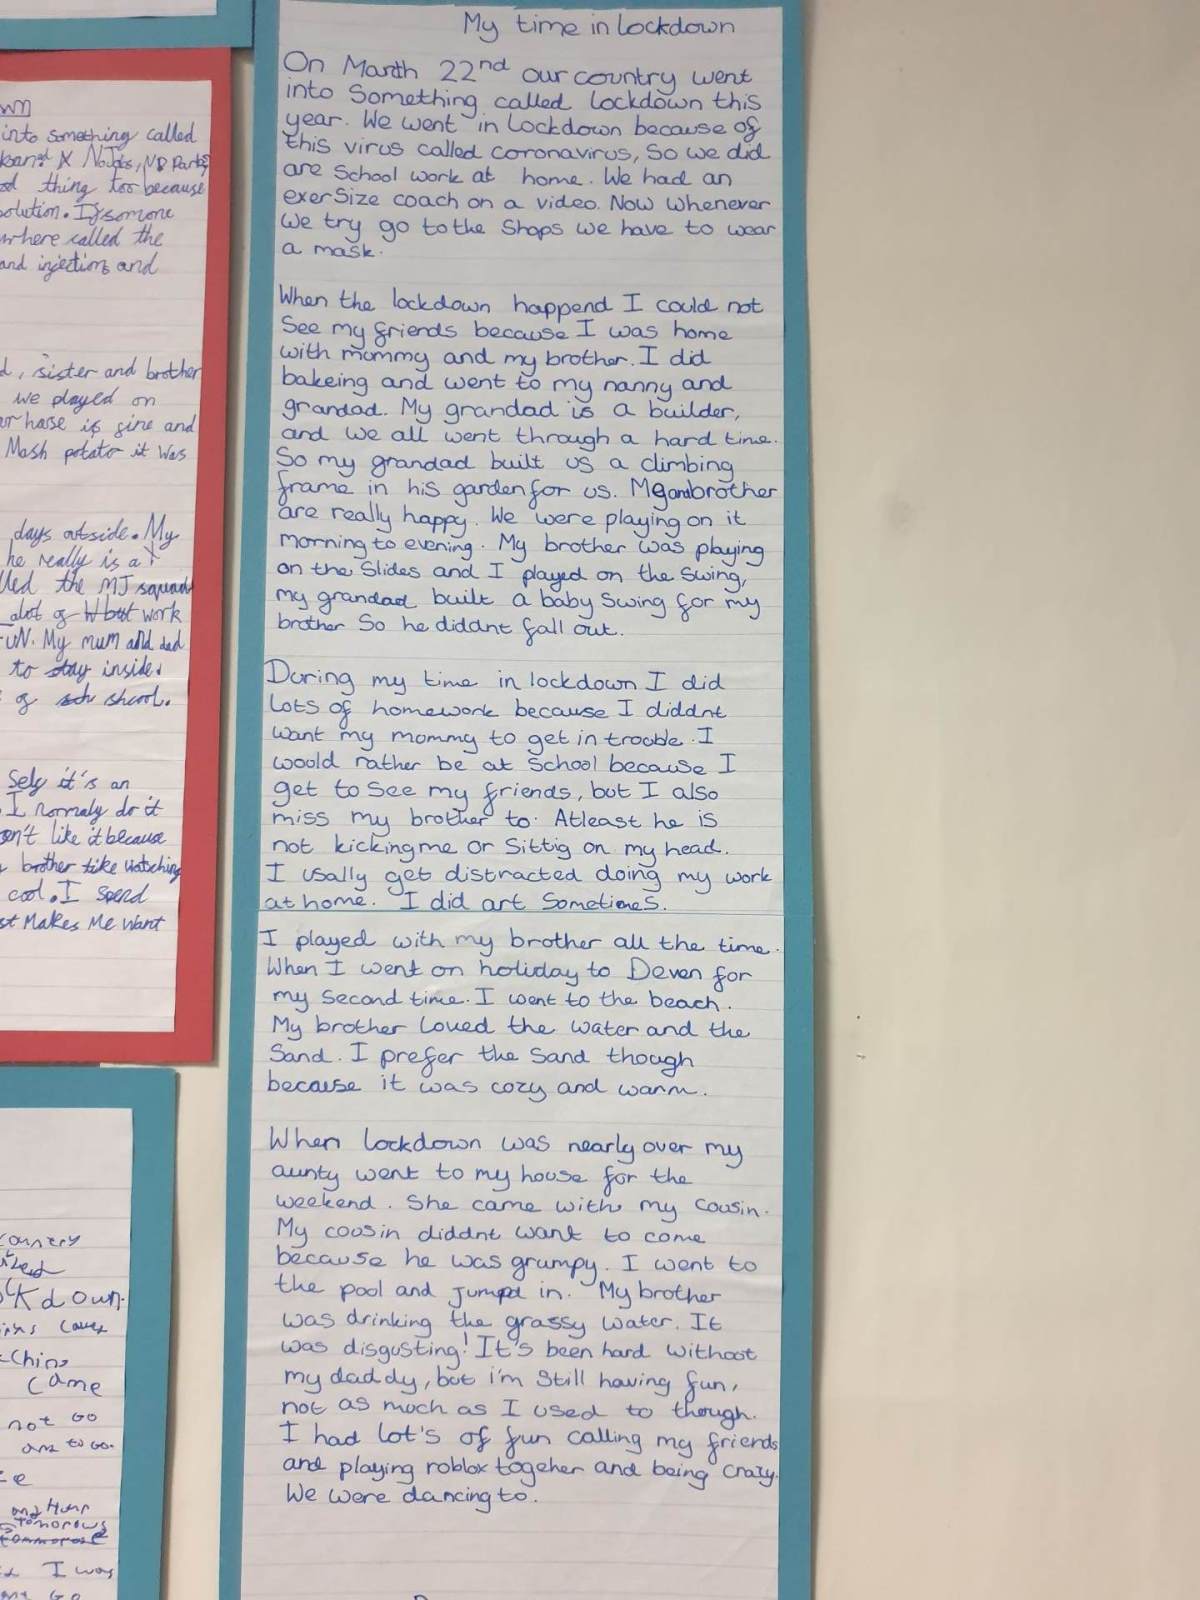 My time in lockdown
On March 22nd our country went
into Something called lockdown this
year. We went in lockdown because of
this virus called coronavirus, So we did
are School work at home. We had an
exerSize coach on a video. Now whenever
we try go to the Shops we have to wear
a mask.
When the lockdown happend I could not
See my friends because I was home
with mommy and my brother. I did
bakeing and went to my nanny and
grandad. My grandad is a builder,
and we all went through a hard time.
So my grandad built us a climbing
frame in his garden for us. Me and brother
are really happy. We were playing on it
morning to evening. My brother was playing
on the Slides and I played on the Swing,
my grandad built a baby Swing for my
brother So he diddnt fall out.
During my time in lockdown I did
lots of homework because I diddnt
want my mommy to get in trouble. I
woold rather be at School because I
get to See my friends, but I also
miss my brother to. Atleast he is
not kicking me or Sittig on my head.
I usally get distracted doing my work
at home. I did art Sometimes.
I played with my brother all the time.
When I went on holiday to Deven for
my Second time. I went to the beach.
My brother loved the water and the
Sand. I prefer the Sand though
because it was cozy and warm.
When lockdown was nearly over my
aunty went to my house for the
weekend. She came with my cousin.
My coosin diddnt want to come
because he was grumpy. I went to
the pool and jumpd in. My brother
was drinking the grassy water. It
was disgusting! It's been hard without
my daddy, but i'm Still having fun,
not as much as I used to though.
I had lot's of fun calling my friends
and playing roblox togeher and being crazy.
We were dancing to.
into something called
thing too because
olution. If somone
where called the
and injections and
, sister and brother
we played on
Mash potato it was
days outside. My
he really is a
lled the MJ squad
alot of work
UN. My mum and dad
to stay inside.
of shcool.
Sely it's an
I normaly do it
on't like it because
brother like watching
cool. I Spend
st Makes Me want
ckdown.
China
came
not Go
I was